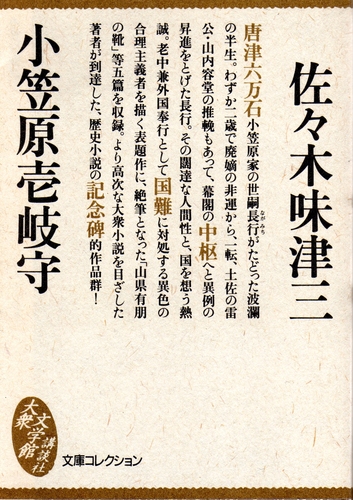 佐々木味津三
唐津六万石小笠原家の世嗣長行がたどった波瀾
ながみち
の半生。わずか二歳で廃嫡の非運から、一転、土佐の雷
公・山内容堂の推輓もあって、幕閣の中枢へと異例の
昇進をとげた長行。その闊達な人間性と、国を想う熱
誠。老中兼外国奉行として国難に対処する異色の
合理主義者を描く表題作に、絶筆となった「山県有朋
の靴」等五篇を収録。より高次な大衆小説を目ざした
著者が到達した、歴史小説の記念碑的作品群!
小笠原壱岐守
大衆文学館
講談社
文庫コレクション